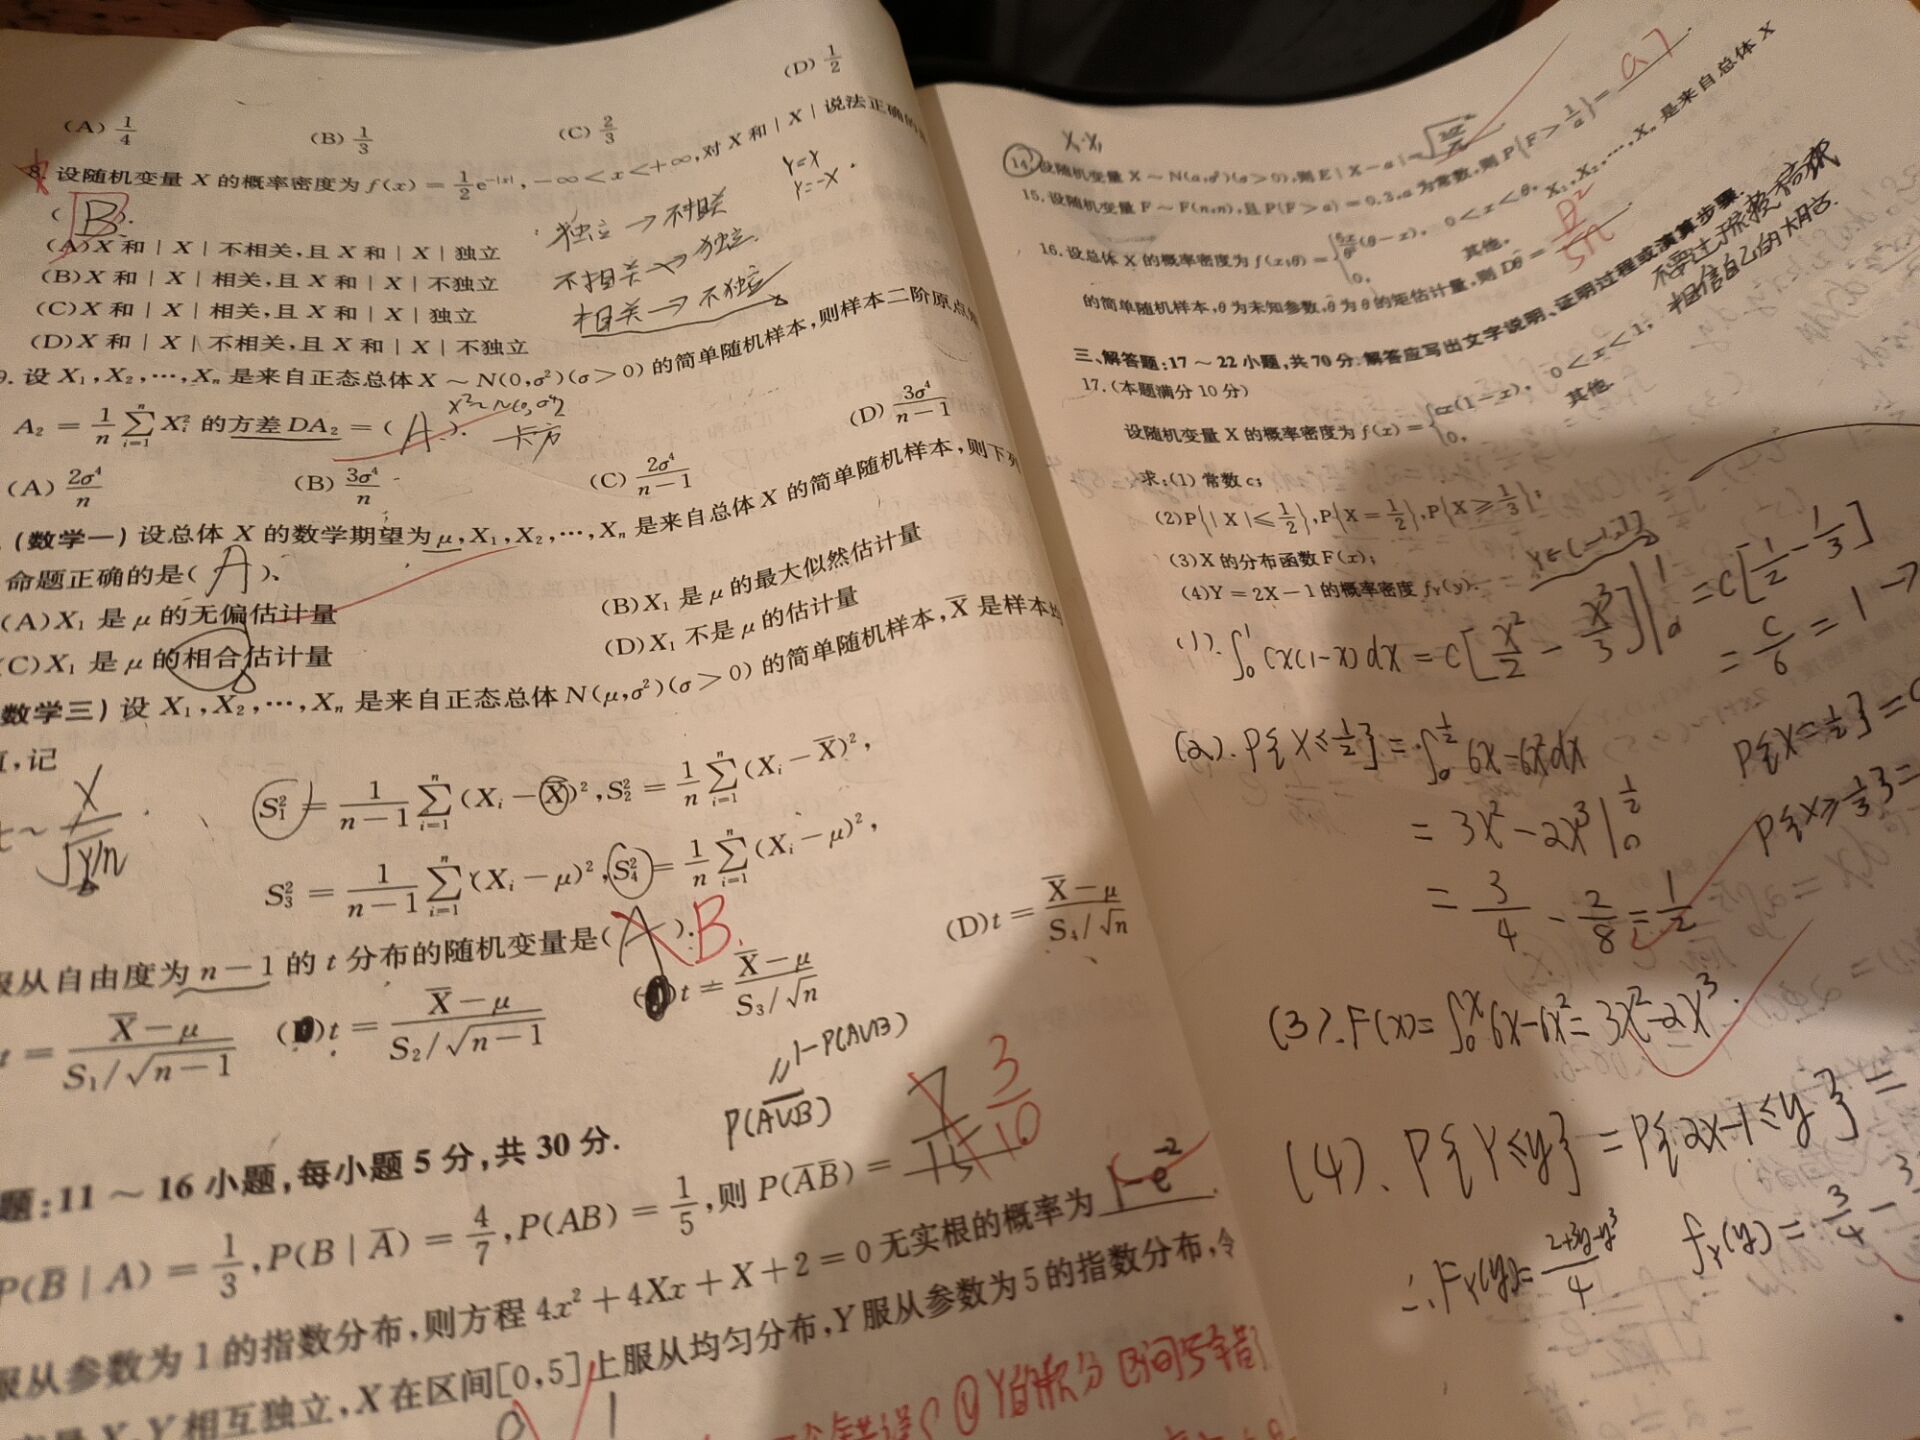 (A) 1/4 (B) 1/3 (C) 2/3 (D) 1/2
8. 设随机变量 X 的概率密度为 f(x) = 1/2 e^{-|x|}, -∞ < x < +∞, 对 X 和 | X | 说法正确的
( B ).
Y=X
Y=-X
(A) X 和 | X | 不相关, 且 X 和 | X | 独立
(B) X 和 | X | 相关, 且 X 和 | X | 不独立
(C) X 和 | X | 相关, 且 X 和 | X | 独立
(D) X 和 | X | 不相关, 且 X 和 | X | 不独立
独立 → 不相关
不相关 → 独立
相关 → 不独立
9. 设 X₁, X₂, ⋯, Xₙ 是来自正态总体 X ~ N(0, σ²)(σ > 0) 的简单随机样本, 则样本二阶原点
A₂ = 1/n ∑_{i=1}^{n} X_i² 的方差 DA₂ = ( A ).
卡方
(A) 2σ⁴/n (B) 3σ⁴/n (C) 2σ⁴/(n-1) (D) 3σ⁴/(n-1)
(数学一) 设总体 X 的数学期望为 μ, X₁, X₂, ⋯, Xₙ 是来自总体 X 的简单随机样本, 则下列
命题正确的是( A )、
(A) X₁ 是 μ 的无偏估计量 (B) X₁ 是 μ 的最大似然估计量
(C) X₁ 是 μ 的相合估计量 (D) X₁ 不是 μ 的估计量
数学三) 设 X₁, X₂, ⋯, Xₙ 是来自正态总体 N(μ, σ²)(σ > 0) 的简单随机样本, X̄ 是样本均
, 记
S₁² = 1/(n-1) ∑_{i=1}^{n} (X_i - X̄)², S₂² = 1/n ∑_{i=1}^{n} (X_i - X̄)²,
t ~ X/√(Y/n)
S₃² = 1/(n-1) ∑_{i=1}^{n} (X_i - μ)², S₄² = 1/n ∑_{i=1}^{n} (X_i - μ)²,
服从自由度为 n-1 的 t 分布的随机变量是( A ). B
t = (X̄ - μ)/(S₁/√(n-1)) t = (X̄ - μ)/(S₂/√(n-1)) t = (X̄ - μ)/(S₃/√n) (D) t = (X̄ - μ)/(S₄/√n)
1-P(A∪B)
P(A∪B)
题: 11 ~ 16 小题, 每小题 5 分, 共 30 分.
P(B | A) = 1/3, P(B | Ā) = 4/7, P(AB) = 1/5, 则 P(ĀB̄) = 7/15 3/10
服从参数为 1 的指数分布, 则方程 4x² + 4Xx + X + 2 = 0 无实根的概率为 1-e^{-2}.
X, Y 相互独立, X 在区间[0,5]上服从均匀分布, Y 服从参数为 5 的指数分布, 令
① Y的积分区间写错
X₁·X₁
14. 设随机变量 X ~ N(a, σ²)(σ > 0), 则 E | X - a | =
15. 设随机变量 F ~ F(n, n), 且 P(F > a) = 0.3, a 为常数, 则 P{F > 1/a} = 0.7.
16. 设总体 X 的概率密度为 f(x;θ) = { 6x/θ³ (θ - x), 0 < x < θ, X₁, X₂, ⋯, Xₙ 是来自总体 X
0, 其他.
的简单随机样本, θ 为未知参数, θ̂ 为 θ 的矩估计量, 则 Dθ̂ = θ²/5n
相信自己的大脑.
三、解答题: 17 ~ 22 小题, 共 70 分. 解答应写出文字说明、证明过程或演算步骤.
17. (本题满分 10 分)
设随机变量 X 的概率密度为 f(x) = { cx(1-x), 0 < x < 1,
0, 其他.
求: (1) 常数 c;
(2) P{| X | ≤ 1/2}, P{X = 1/2}, P{X ≥ 1/3};
(3) X 的分布函数 F(x);
(4) Y = 2X - 1 的概率密度 f_Y(y).
(1). ∫₀¹ cx(1-x)dx = c[x²/2 - x³/3]|₀¹ = c[1/2 - 1/3]
= c/6 = 1 →
(2). P{X ≤ 1/2} = ∫₀^{1/2} 6x-6x²dx P{X = 1/2} =
= 3x² - 2x³ |₀^{1/2} P{X ≥ 1/3} =
= 3/4 - 2/8 = 1/2
(3). F(x) = ∫₀ˣ 6x-6x² = 3x²-2x³.
(4). P{Y ≤ y} = P{2X-1 ≤ y} =
∴ F_Y(y) = (2+3y-y³)/4 f_Y(y) = 3/4 -